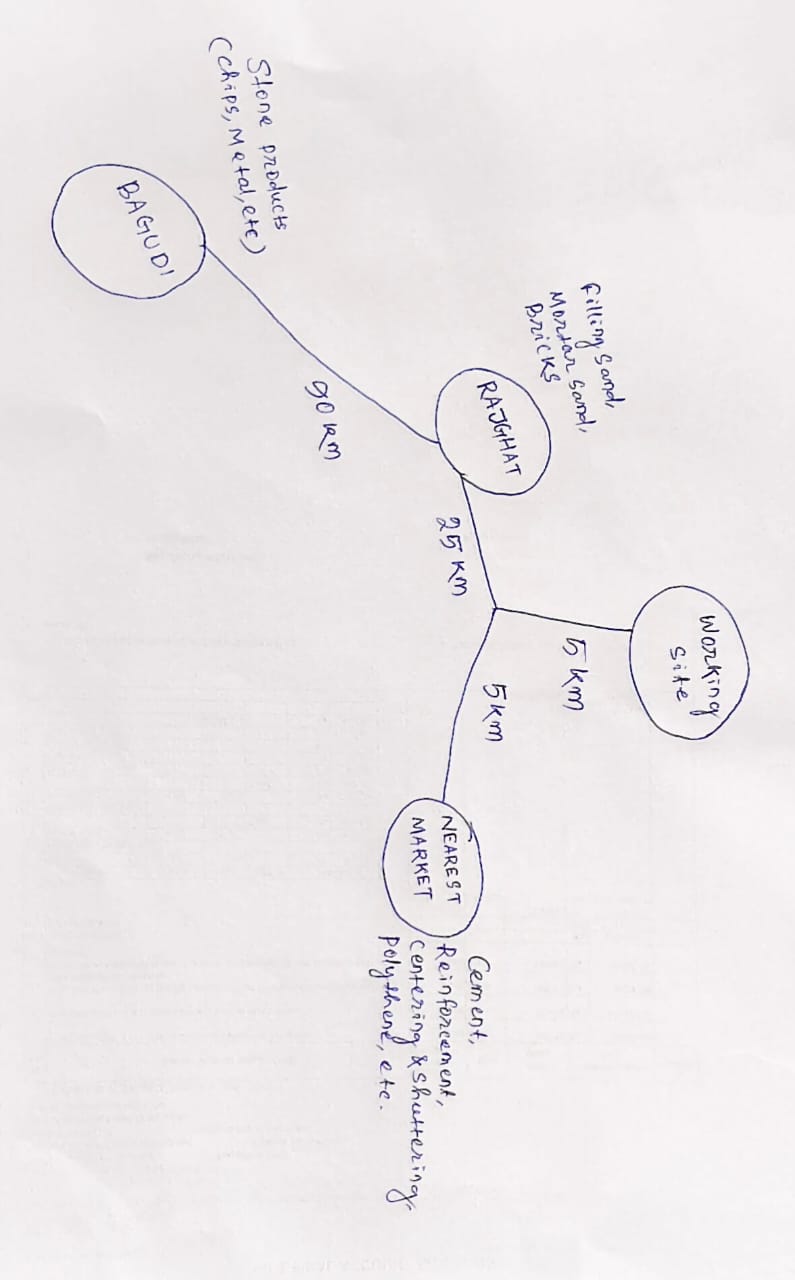 Working
Site
5 km
filling sand,
Mortar sand,
Bricks
RAJGHAT
25 KM
5km
NEAREST
MARKET
Cement,
Reinforcement,
centering & shuttering,
polythene, etc.
90 KM
Stone products
(chips, Metal, etc)
BAGUDI